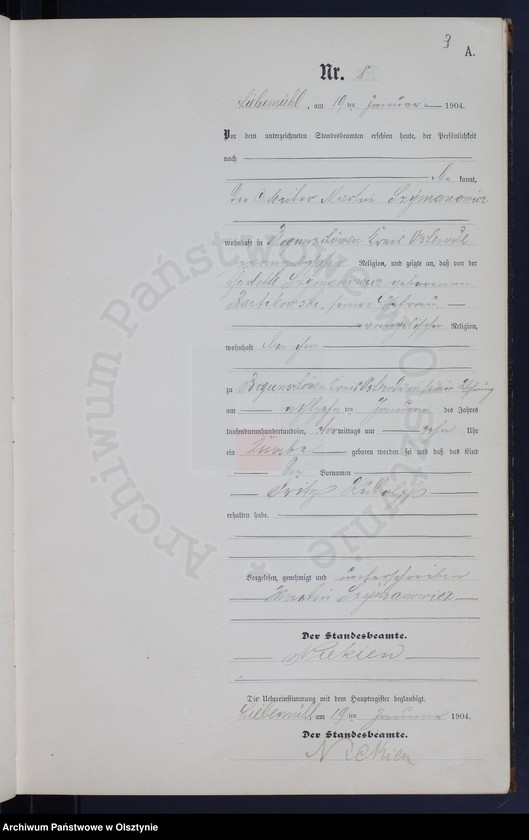 3
A.
Nr. 8
Liebemühl, am 19ten Januar 1904.
Vor dem unterzeichneten Standesbeamten erschien heute, der Persönlichkeit
nach
be kannt,
der Arbeiter Martin Szymanowicz
wohnhaft in Bogunschöwen Kreis Osterode
evangelischer Religion, und zeigte an, daß von der
Szymanowicz geborenen
seiner Ehefrau
evangelischer Religion,
wohnhaft bei ihm
zu Bogunschöwen Kreis Osterode in seiner Wohnung
am ten Januar des Jahres
tausendneunhundertundvier, Vormittags um zehn Uhr
ein Knabe geboren worden sei und daß das Kind
Vornamen
Fritz
erhalten habe.
Vorgelesen, genehmigt und unterschrieben
Martin Szymanowicz
Der Standesbeamte.
Nickien
Die Uebereinstimmung mit dem Hauptregister beglaubigt.
Liebemühl am 19ten Januar 1904.
Der Standesbeamte.
Nickien
Archiwum Państwowe w Olsztynie
Archiwum Państwowe w Olsztynie